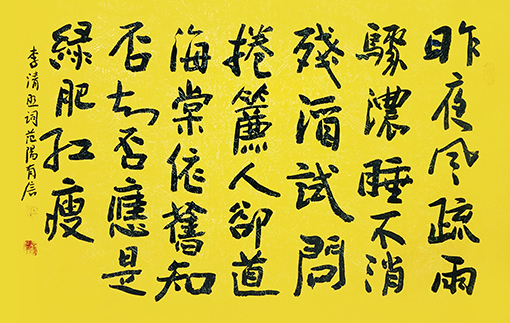 昨夜风疏雨
驟濃睡不消
殘酒試問
捲簾人卻道
海棠依舊知
否知否應是
綠肥红瘦
李清照词范陽有信